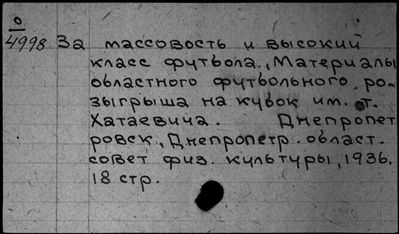 0
4998 За массовость и высокий
класс футбола., Материалы
областного футбольного, ро-
зыгрыша на кубок им. т.
Хатаевича. Днепропет
ровск., Днепропетр. област.
совет физ. культуры, 1936.
18 стр.